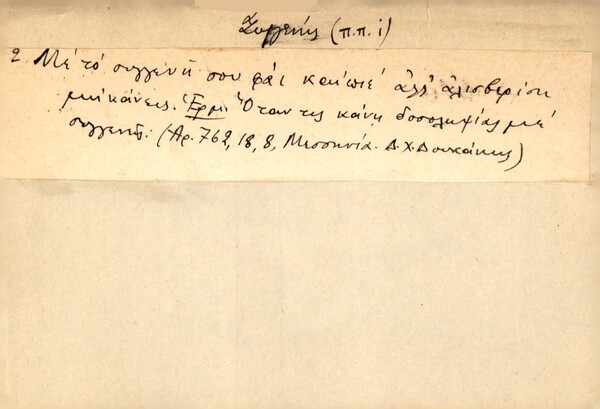 Συγγενής (π.π. i)
2 Μέ τό συγγενῆ σου φάε καί πιέ ἀλλ' ἀλισβερίσι
μή κάνεις. Ἑρμ. Ὅταν τις κάνῃ δοσοληψίας μέ
συγγενεῖς. (Ἀρ. 762, 18, 8, Μεσσηνία. Δ. Χ. Δουκάκης)